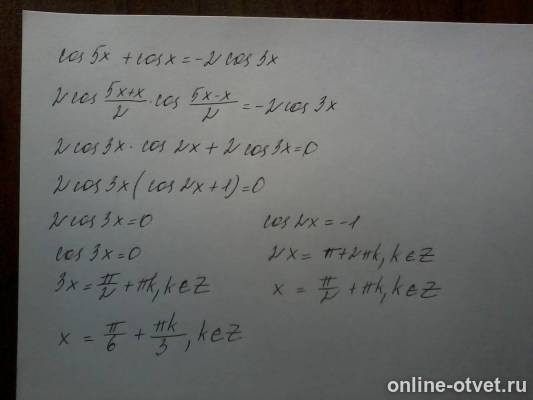 cos 5x + cos x = -2 cos 3x
2 cos (5x+x)/2 · cos (5x-x)/2 = -2 cos 3x
2 cos 3x · cos 2x + 2 cos 3x = 0
2 cos 3x (cos 2x + 1) = 0
2 cos 3x = 0 cos 2x = -1
cos 3x = 0 2x = π + 2πk, k∈Z
3x = π/2 + πk, k∈Z x = π/2 + πk, k∈Z
x = π/6 + πk/3, k∈Z
online-otvet.ru